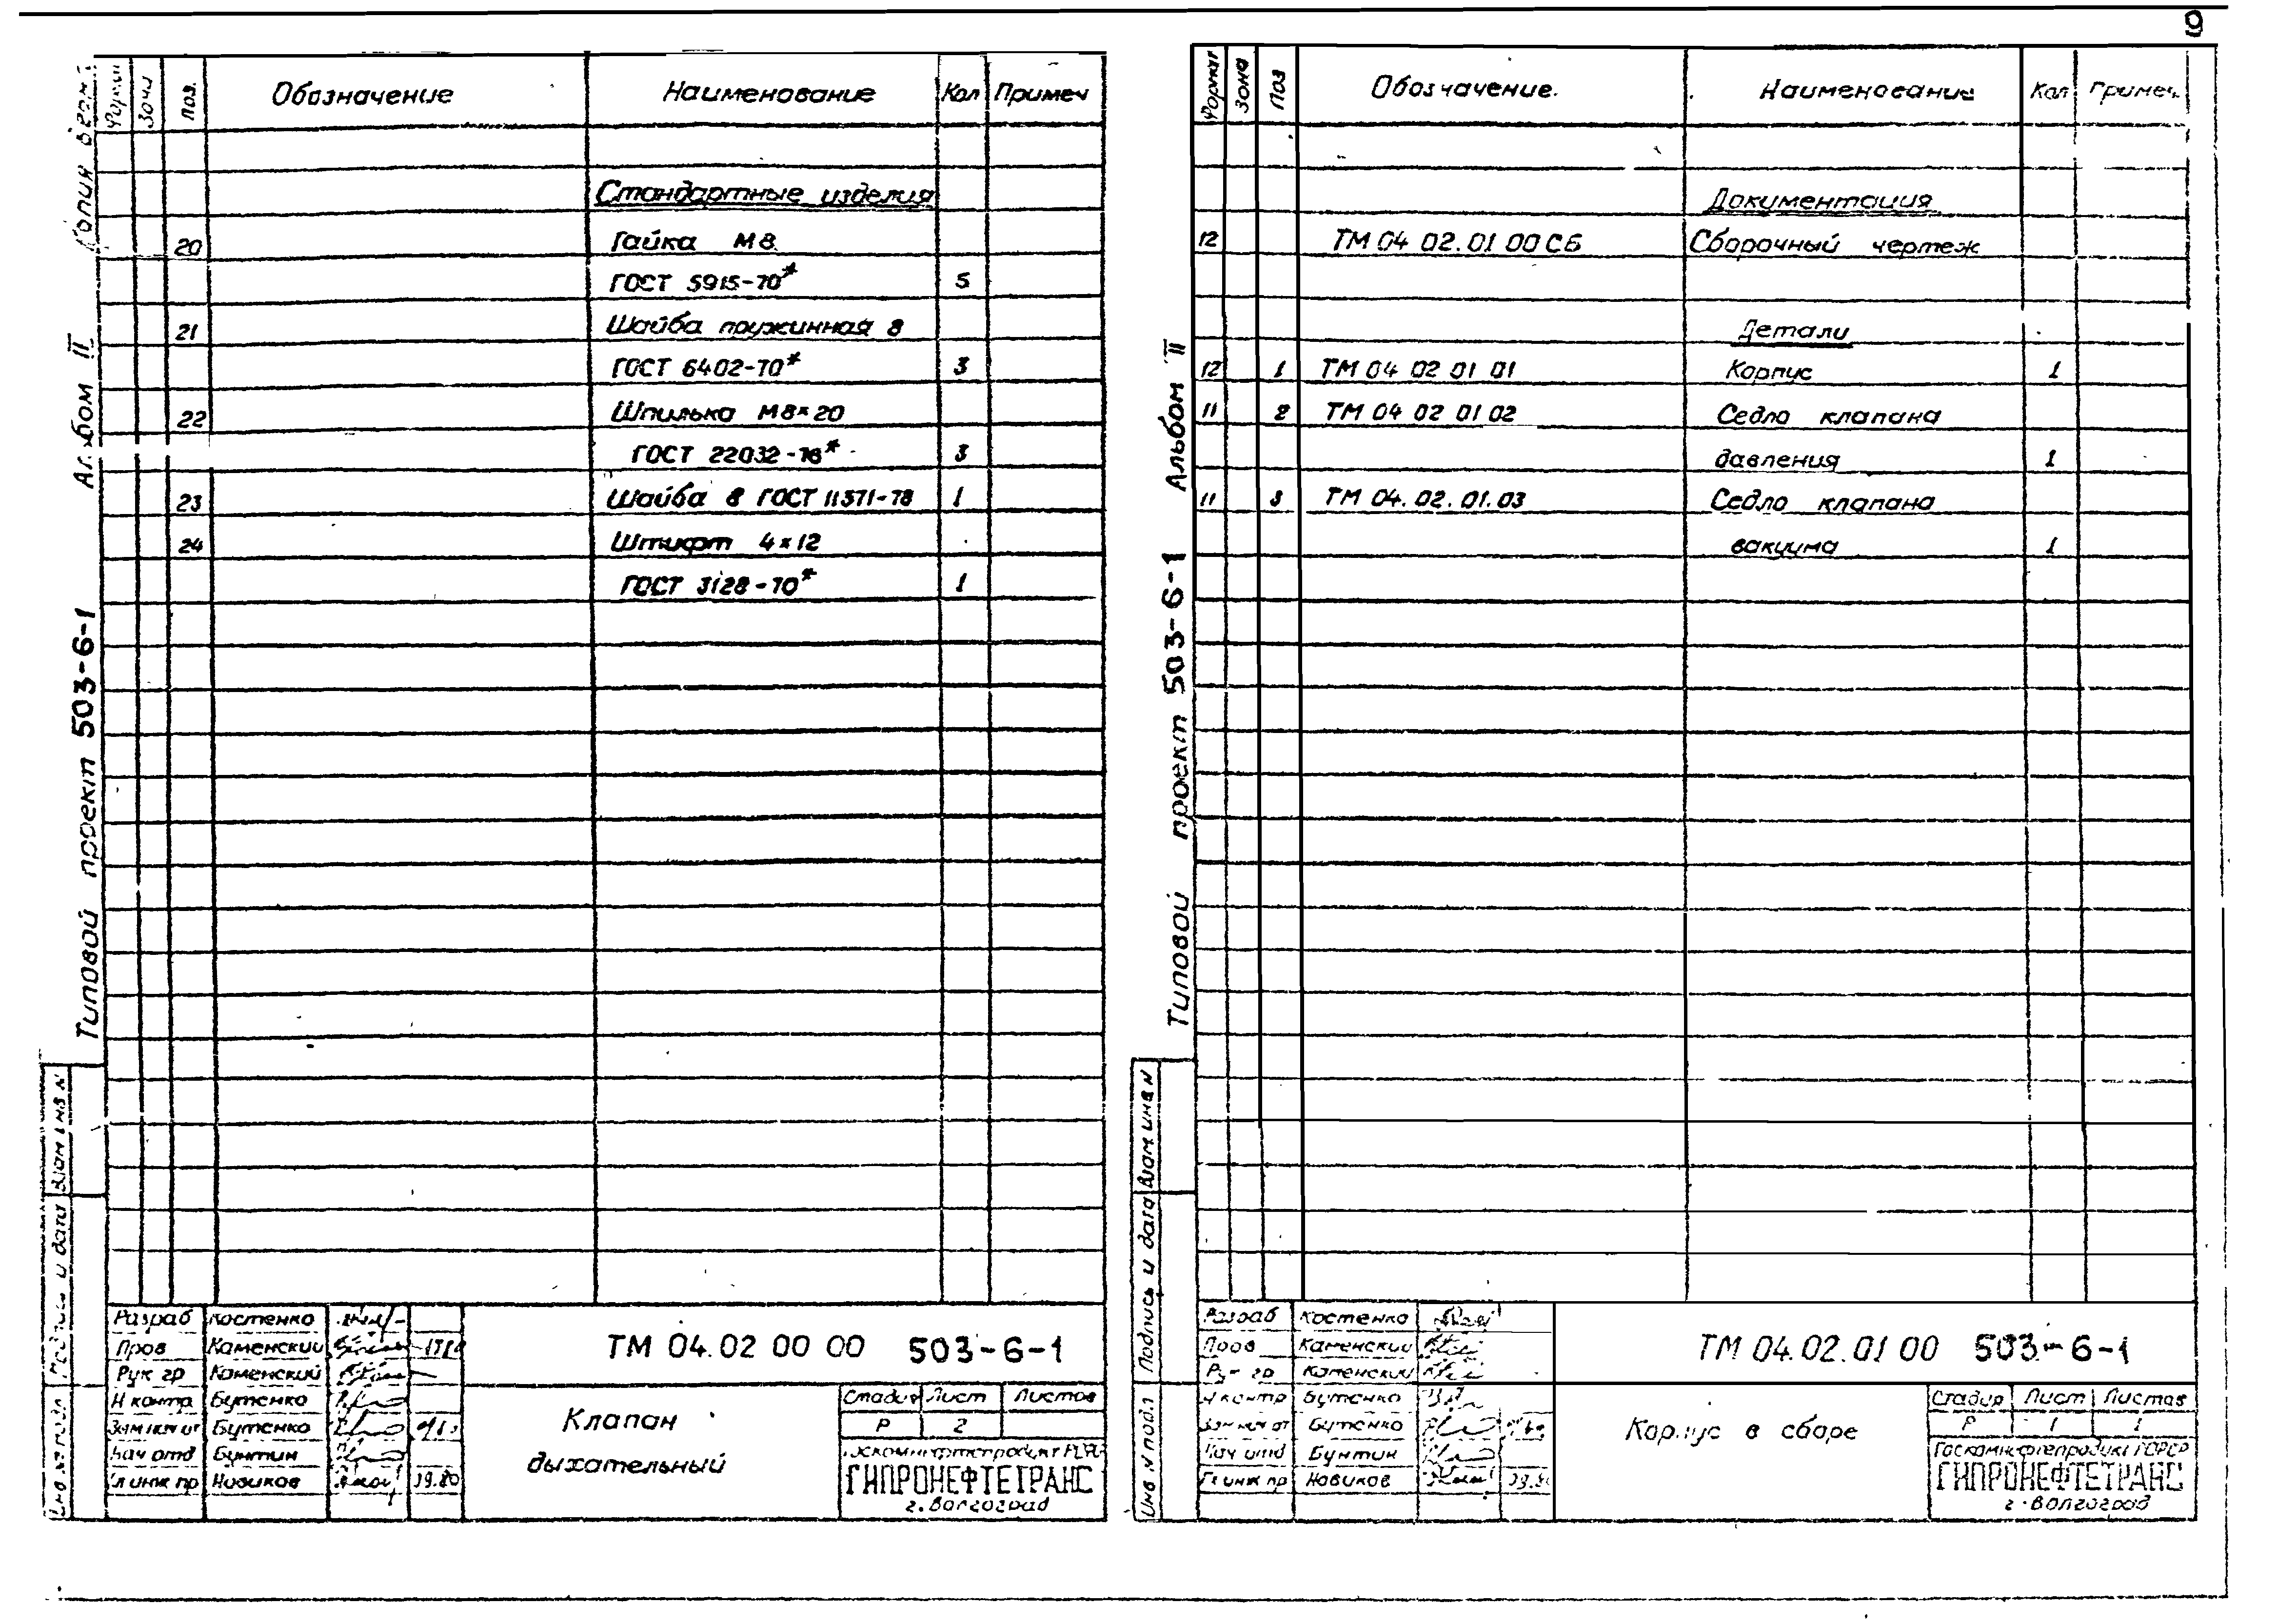 9
Поз. Обозначение Наименование Кол Примеч
Стандартные изделия
20 Гайка М8
ГОСТ 5915-70* 5
21 Шайба пружинная 8
ГОСТ 6402-70* 3
22 Шпилька М8×20
ГОСТ 22032-76* 3
23 Шайба 8 ГОСТ 11371-78 1
24 Штифт 4×12
ГОСТ 3128-70* 1
Типовой проект 503-6-1 Альбом II
Взам инв N
Подпись и дата
Инв № подл
Разраб Костенко
Пров Каменский
Рук гр Каменский
Н контр Бутенко
Зам нач от Бутенко
Нач отд Бунтин
Гл инж пр Новиков 09.80
ТМ 04.02 00 00 503-6-1
Клапан
дыхательный
Стадия Лист Листов
Р 2
Госкомнефтепродукт РСФСР
ГИПРОНЕФТЕТРАНС
г. Волгоград
Формат Зона Поз Обозначение. Наименование Кол Примеч.
Документация
12 ТМ 04 02.01 00 СБ Сборочный чертеж
Детали
12 1 ТМ 04 02 01 01 Корпус 1
11 2 ТМ 04 02 01 02 Седло клапана
давления 1
11 3 ТМ 04.02.01.03 Седло клапана
вакуума 1
Типовой проект 503-6-1 Альбом II
Взам инв N
Подпись и дата
Инв N подл
Разраб Костенко
Пров Каменский
Рук гр Каменский
Н контр Бутенко
Зам нач от Бутенко
Нач отд Бунтин
Гл инж пр Новиков 09.80
ТМ 04.02.01 00 503-6-1
Корпус в сборе
Стадия Лист Листов
Р 1 1
Госкомнефтепродукт РСФСР
ГИПРОНЕФТЕТРАНС
г. Волгоград